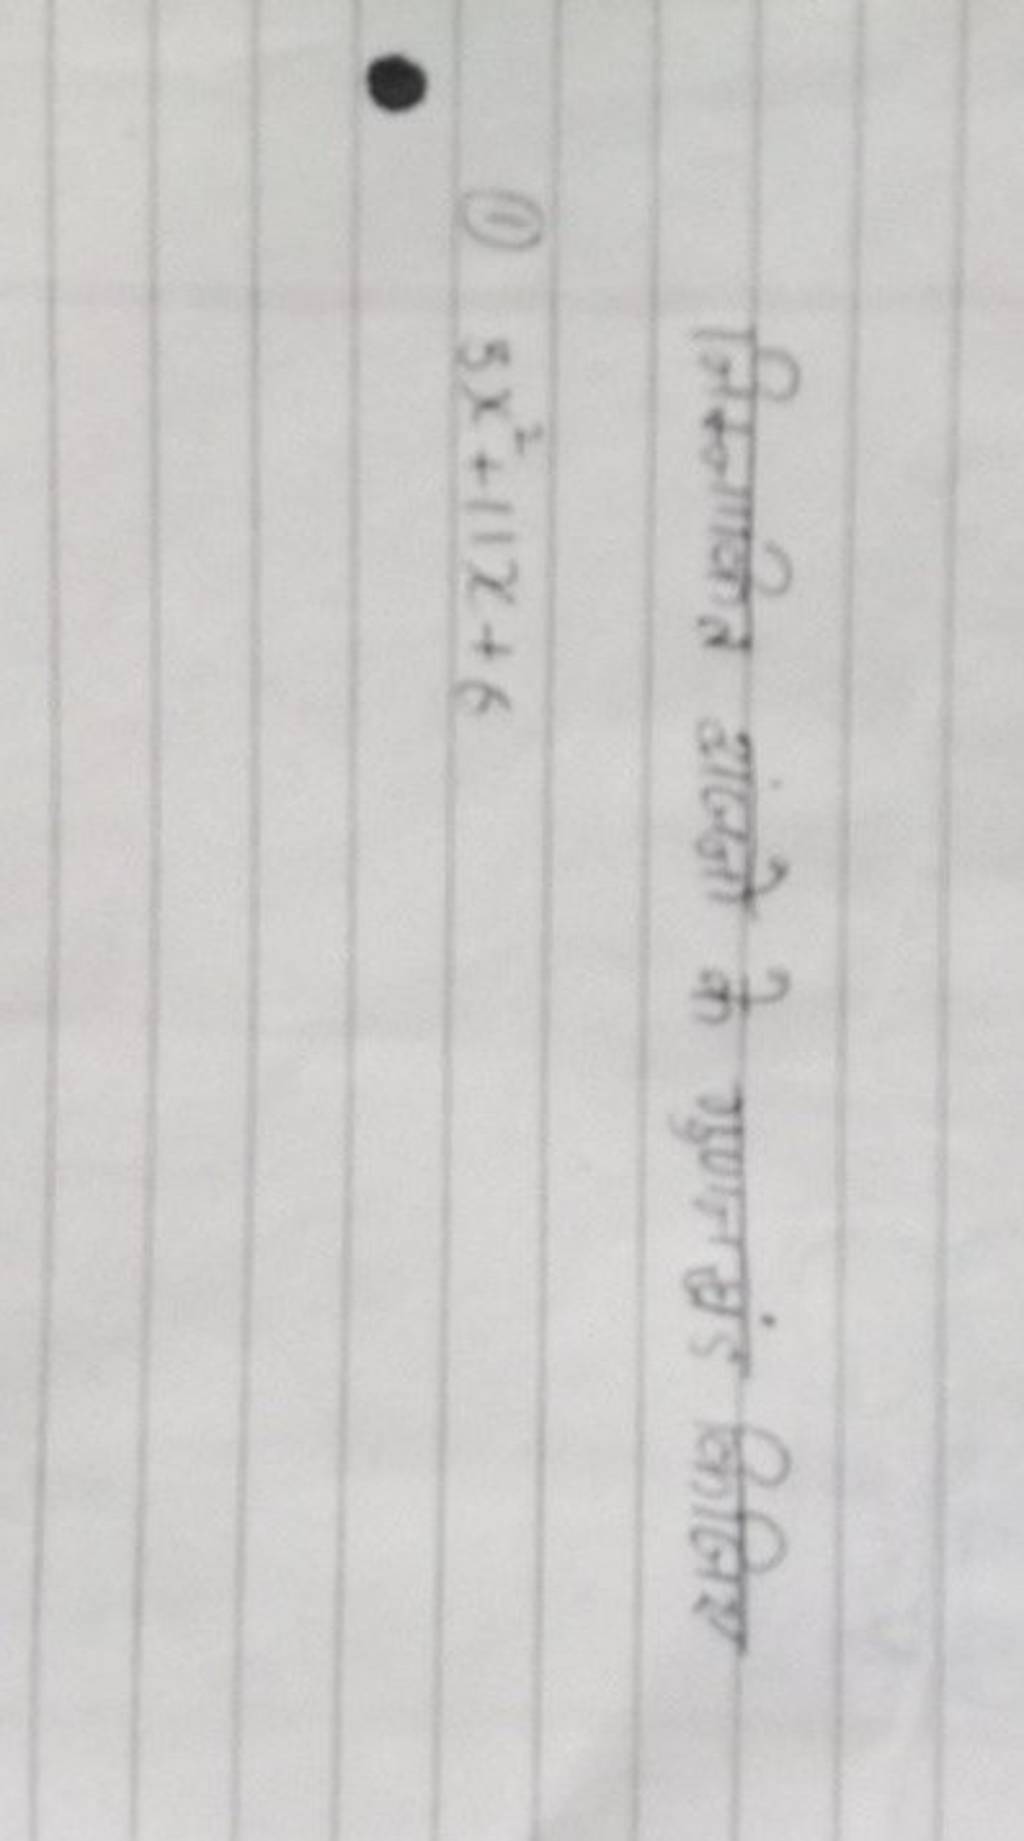 निम्नलिखित व्यंजनों के गुणनखंड लिखिए
① 5x²+11x+6